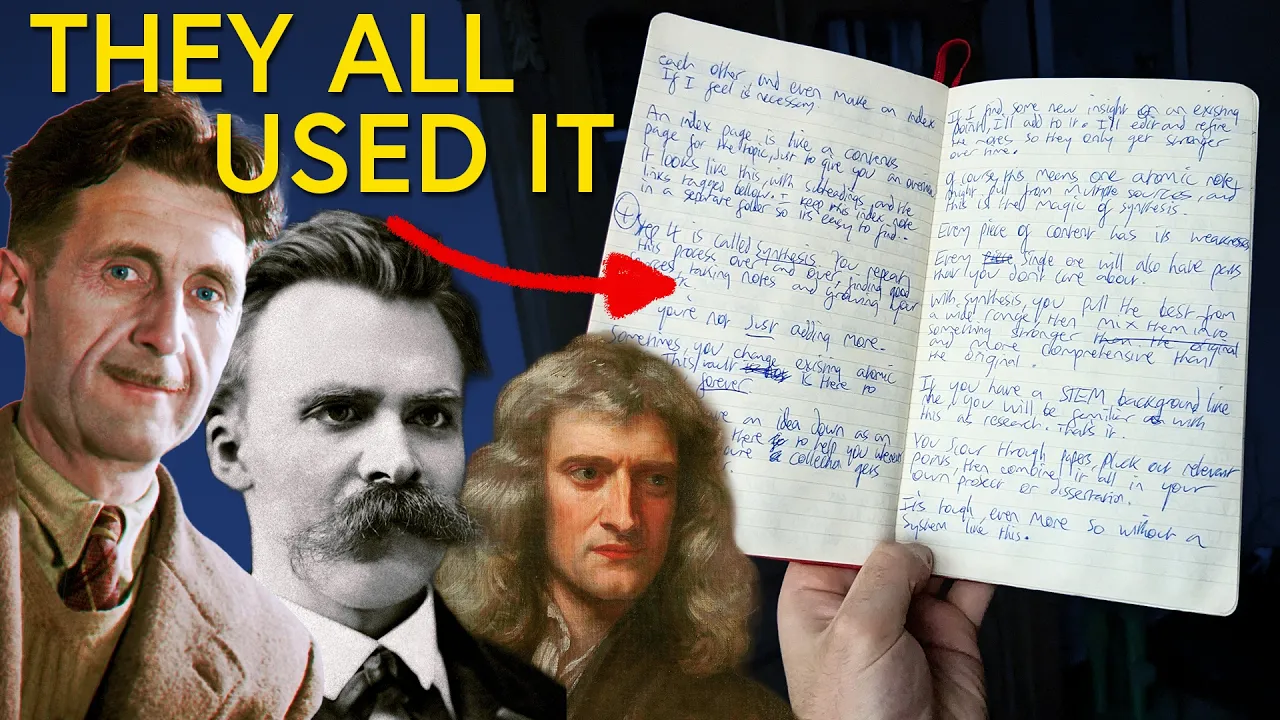 THEY ALL
USED IT
each other, and even make an index
if I feel is necessary
An index page is like a contents
page for the topic, just to give you an overview
It looks like this, with subheadings, and the
links tagged below. I keep this index note
in a separate folder so its easy to find.
Step 4 is called synthesis. You repeat
this process over and over, finding good
sources, taking notes and growing your
you're not just adding more.
Sometimes, you change existing atomic
This vault is here to
forever
an idea down as an
there to help you
are a collection gets
If I find some new insight or an existing
point, I'll add to it. I'll edit and refine
the notes, so they only get stronger
over time.
Of course, this means one atomic note
might pull from multiple sources, and
this is the magic of synthesis.
Every piece of content has its weaknesses
Every single one will also have parts
that you don't care about.
With synthesis, you pull the best from
a wide range, then mix them into
something stronger then the original
and more comprehensive than
the original.
If you have a STEM background like
me, you will be familiar with
this as research. That's it.
You scour through papers, pluck out relevant
points, then combine it all in your
own project or dissertation.
It's tough, even more so without a
system like this.